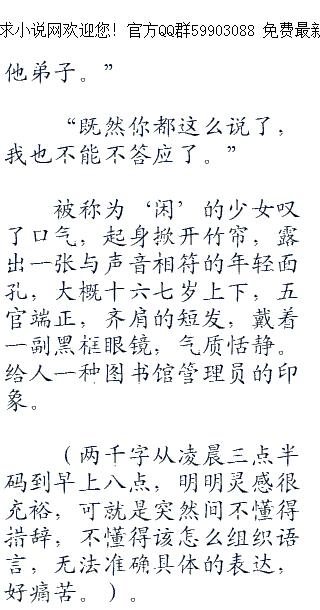 求小说网欢迎您！官方QQ群59903088 免费最新
他弟子。”
“既然你都这么说了，
我也不能不答应了。”
被称为‘闲’的少女叹
了口气，起身掀开竹帘，露
出一张与声音相符的年轻面
孔，大概十六七岁上下，五
官端正，齐肩的短发，戴着
一副黑框眼镜，气质恬静。
给人一种图书馆管理员的印
象。
（两千字从凌晨三点半
码到早上八点，明明灵感很
充裕，可就是突然间不懂得
措辞，不懂得该怎么组织语
言，无法准确具体的表达，
好痛苦。）。